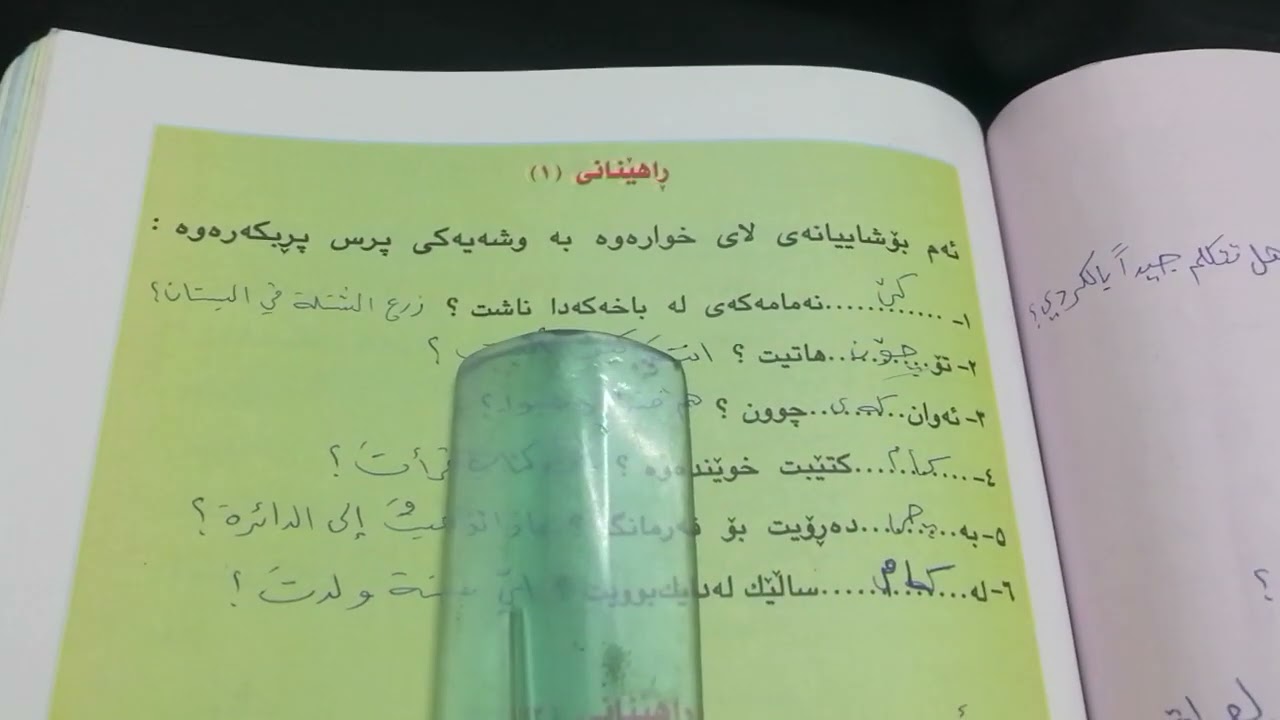 ڕاهێنانی (١)
ئەم بۆشاییانەی لای خوارەوە بە وشەیەکی پرس پڕبکەرەوە :
١- ....کێ....نەمامەکەی لە باخەکەدا ناشت ؟ زرع الشتلة في البستان؟
٢- تۆ..چۆن..هاتیت ؟ انت ؟
٣- ئەوان..کەی..چوون ؟ هم ؟
٤- ...کام....کتێبت خوێندەوە ؟ كتاب قرأتَ ؟
٥- بە......دەڕۆیت بۆ فەرمانگە ؟ إلى الدائرة ؟
٦- لە...کام.....ساڵێك لەدایك‌بوویت ؟ سنة ولدتَ ؟
ڕاهێنانی
هل تتكلم جيداً بالكردي؟
؟